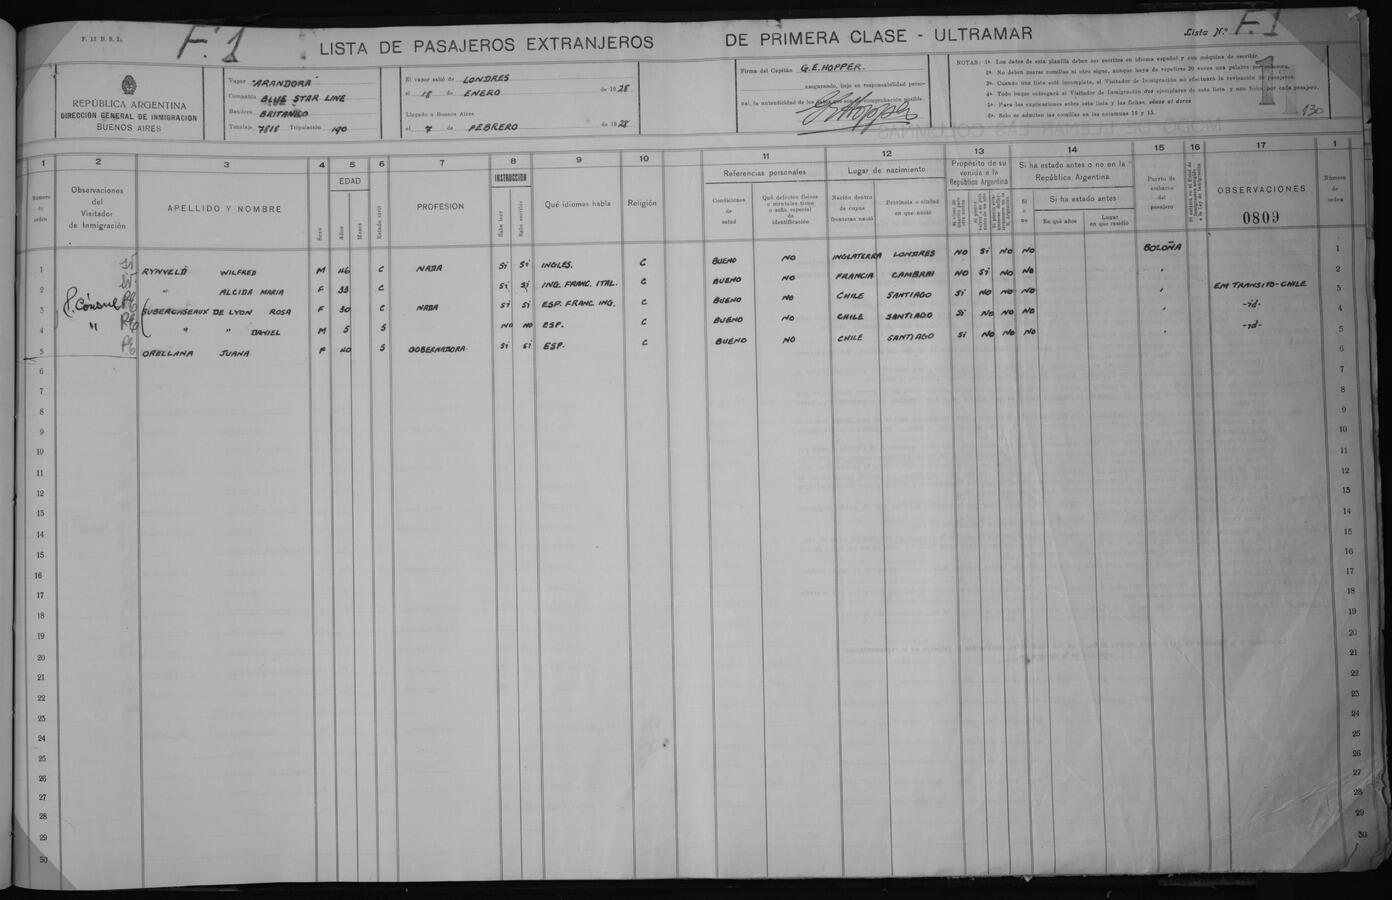 F. 13 B. S. L.
F. 1
LISTA DE PASAJEROS EXTRANJEROS DE PRIMERA CLASE - ULTRAMAR
Lista N.° F. 1
REPÚBLICA ARGENTINA
DIRECCIÓN GENERAL DE INMIGRACIÓN
BUENOS AIRES
Vapor "ARANDORA"
Compañía BLUE STAR LINE
Bandera BRITANICO
Tonelaje 7818 Tripulación 190
El vapor salió de LONDRES
el 18 de ENERO de 1928
Llegado a Buenos Aires
el 7 de FEBRERO de 1928
Firma del Capitán G.E. HOPPER.
asegurando, bajo su responsabilidad perso-
nal, la autenticidad de los datos que son de comprobación posible.
GEHopper
NOTAS: 1ª Los datos de esta planilla deben ser escritos en idioma español y con máquina de escribir.
2ª No deben usarse comillas ni otro signo, aunque haya de repetirse 30 veces una palabra por columna.
3ª Cuando una lista esté incompleta, el Visitador de Inmigración no efectuará la revisación de pasajeros.
4ª Todo buque entregará al Visitador de Inmigración dos ejemplares de esta lista y una ficha por cada pasajero.
5ª Para las explicaciones sobre esta lista y las fichas, véase al dorso
6ª Solo se admiten las comillas en las columnas 10 y 15.
11
130
1 2 3 4 5 6 7 8 9 10 11 12 13 14 15 16 17 1
Número de orden
Observaciones del Visitador de Inmigración
APELLIDO Y NOMBRE
Sexo
EDAD
Años
Meses
Estado civil
PROFESION
INSTRUCCION
Sabe leer
Sabe escribir
Qué idiomas habla
Religión
Referencias personales
Condiciones de salud
Qué defectos físicos o mentales tiene o seña especial de identificación
Lugar de nacimiento
Nación dentro de cuyas fronteras nació
Provincia o ciudad en que nació
Propósito de su venida a la República Argentina
Si ha estado antes o no en la República Argentina
Si o no
Si ha estado antes
En qué años
Lugar en que residió
Puerto de embarco del pasajero
OBSERVACIONES
0809
Número de orden
1 RYNVELD WILFRED M 46 C NADA Si Si INGLES. C BUENO NO INGLATERRA LONDRES NO Si NO NO BOLOÑA 1
2 " ALCIDA MARIA F 33 C Si Si ING. FRANC. ITAL. C BUENO NO FRANCIA CAMBRAI NO Si NO NO " 2
3 P. Cónsul SUBERCASEAUX DE LYON ROSA F 30 C NADA Si Si ESP. FRANC. ING. C BUENO NO CHILE SANTIAGO Si NO NO NO " EM TRANSITO-CHILE 3
4 " " " DANIEL M 5 S NO NO ESP. C BUENO NO CHILE SANTIAGO Si NO NO NO " -id- 4
5 ORELLANA JUANA F 40 S GOBERNADORA. Si Si ESP. C BUENO NO CHILE SANTIAGO Si NO NO NO " -id- 5
6 6
7 7
8 8
9 9
10 10
11 11
12 12
13 13
14 14
15 15
16 16
17 17
18 18
19 19
20 20
21 21
22 22
23 23
24 24
25 25
26 26
27 27
28 28
29 29
30 30